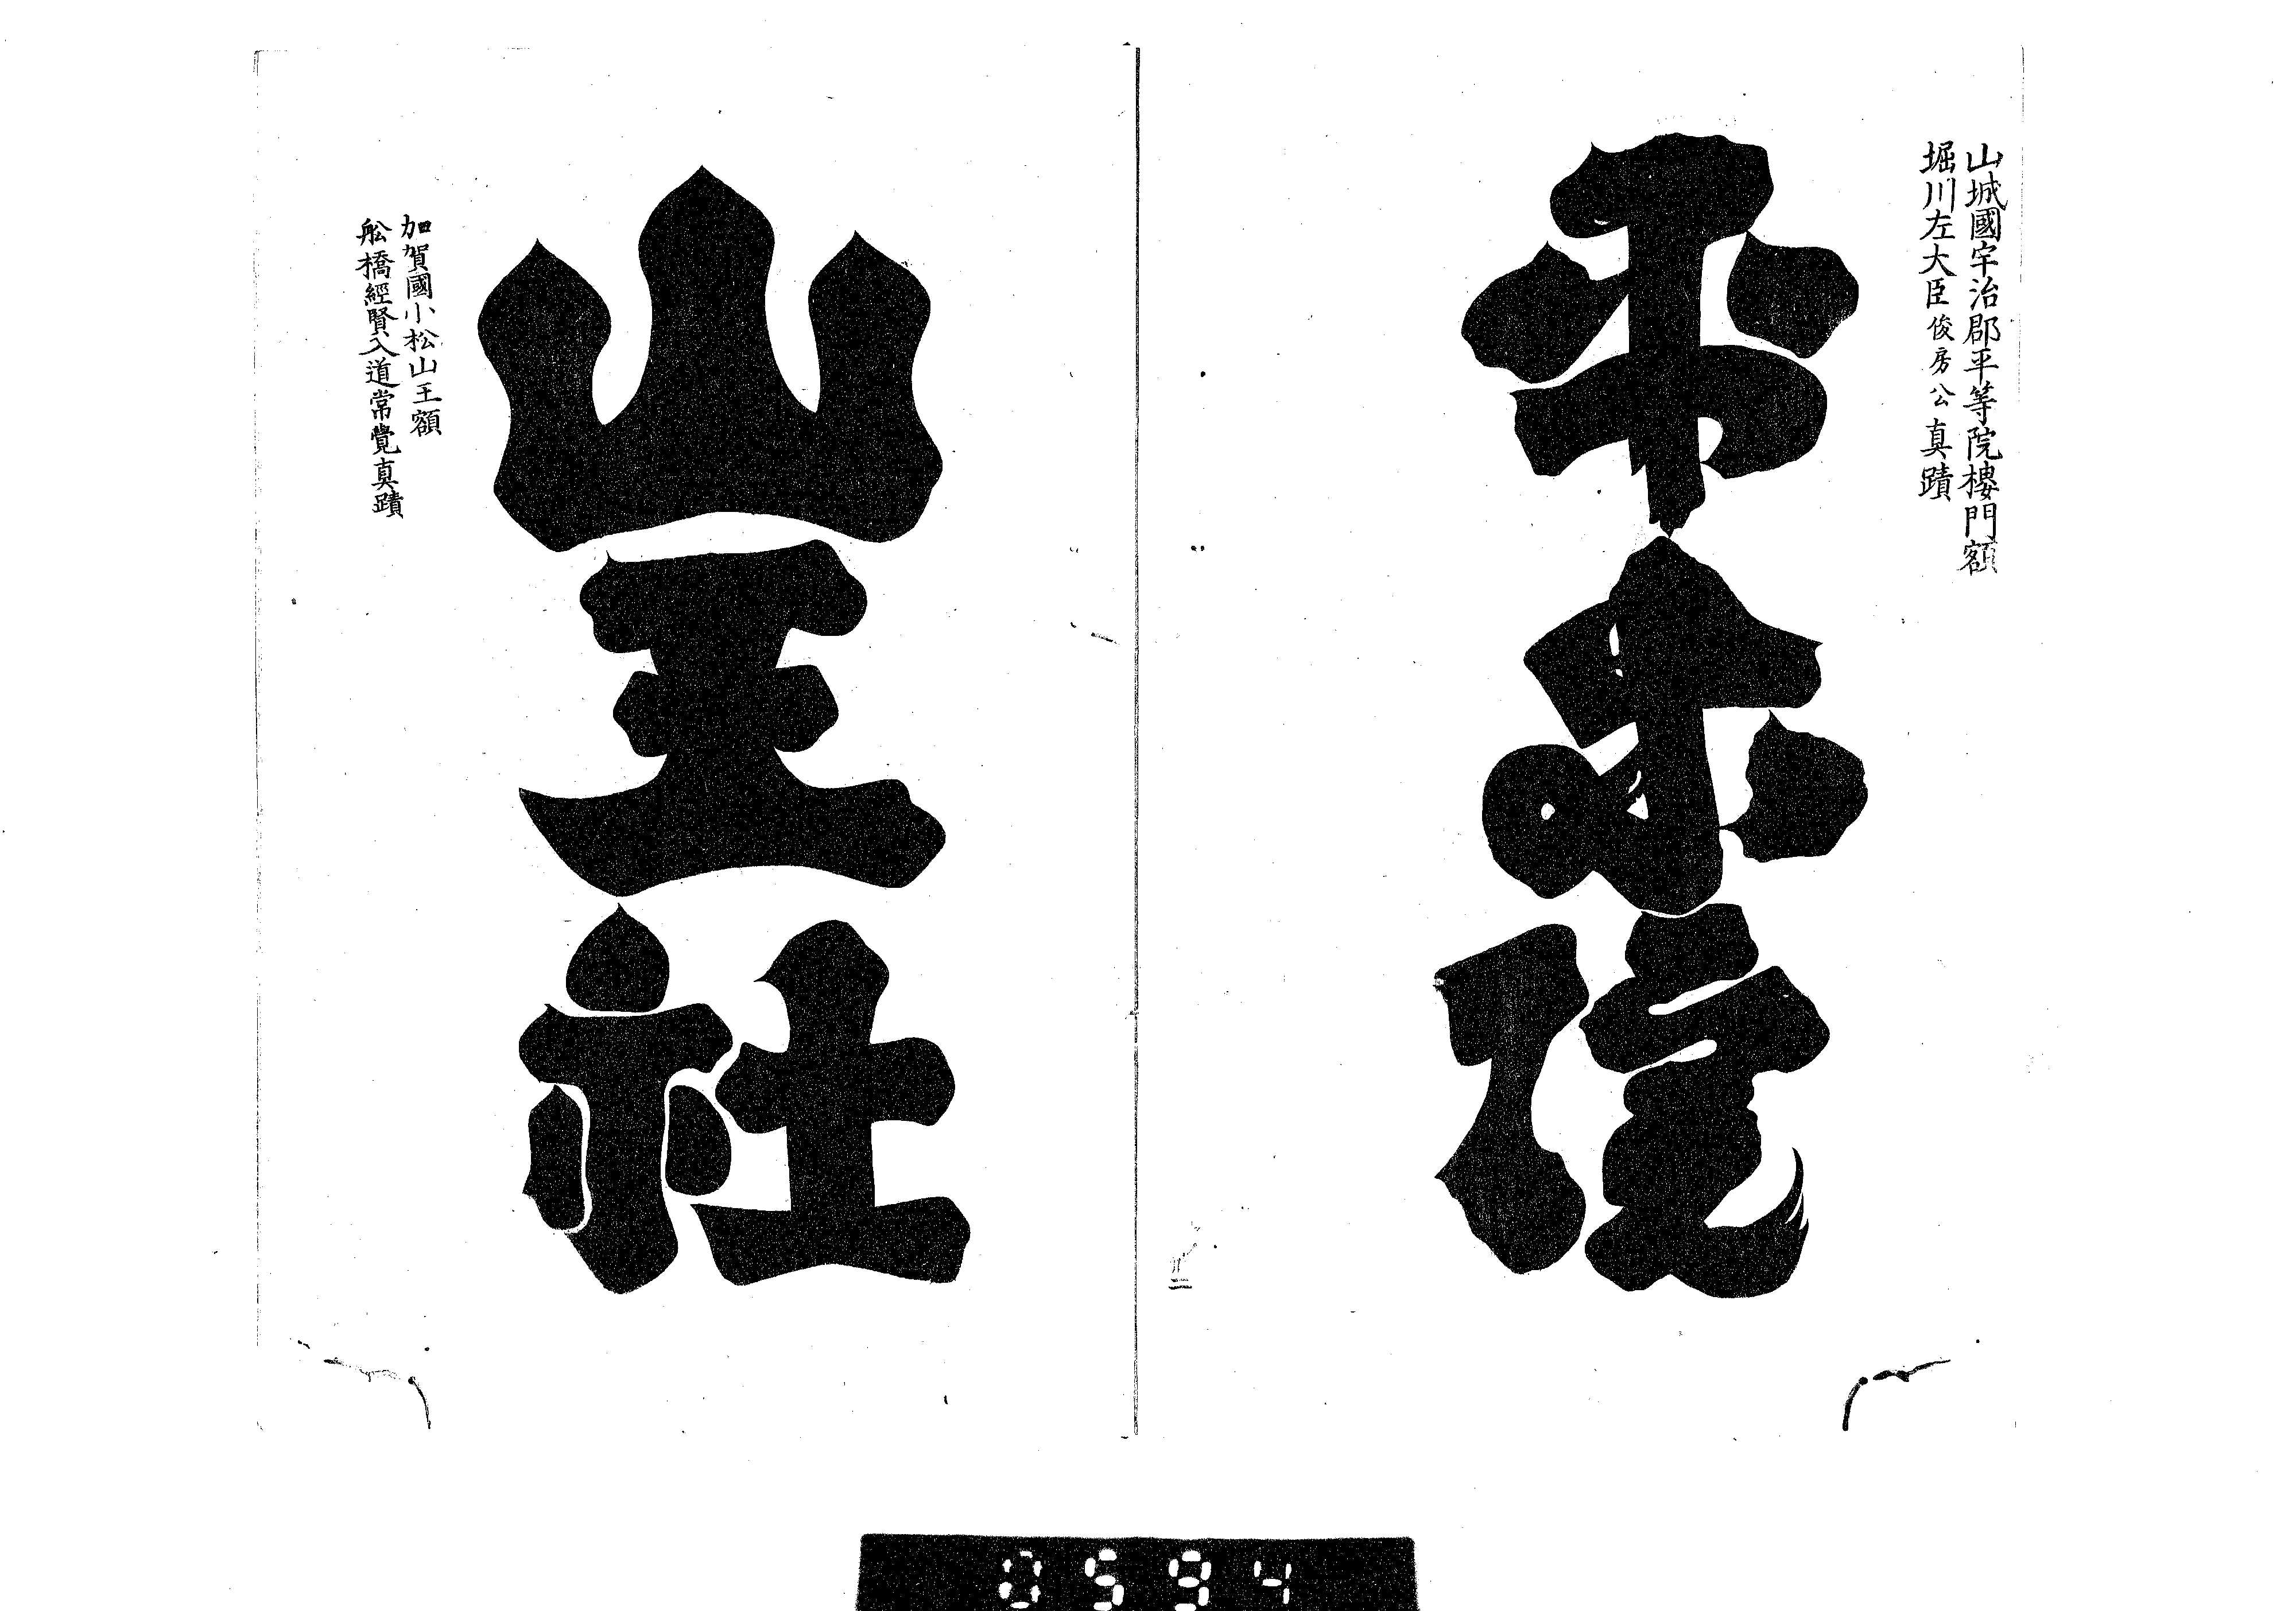 山城國宇治郡平等院樓門額
堀川左大臣俊房公真蹟
平等院
山王社
加賀國小松山王額
舩橋經賢入道常覺真蹟
0594